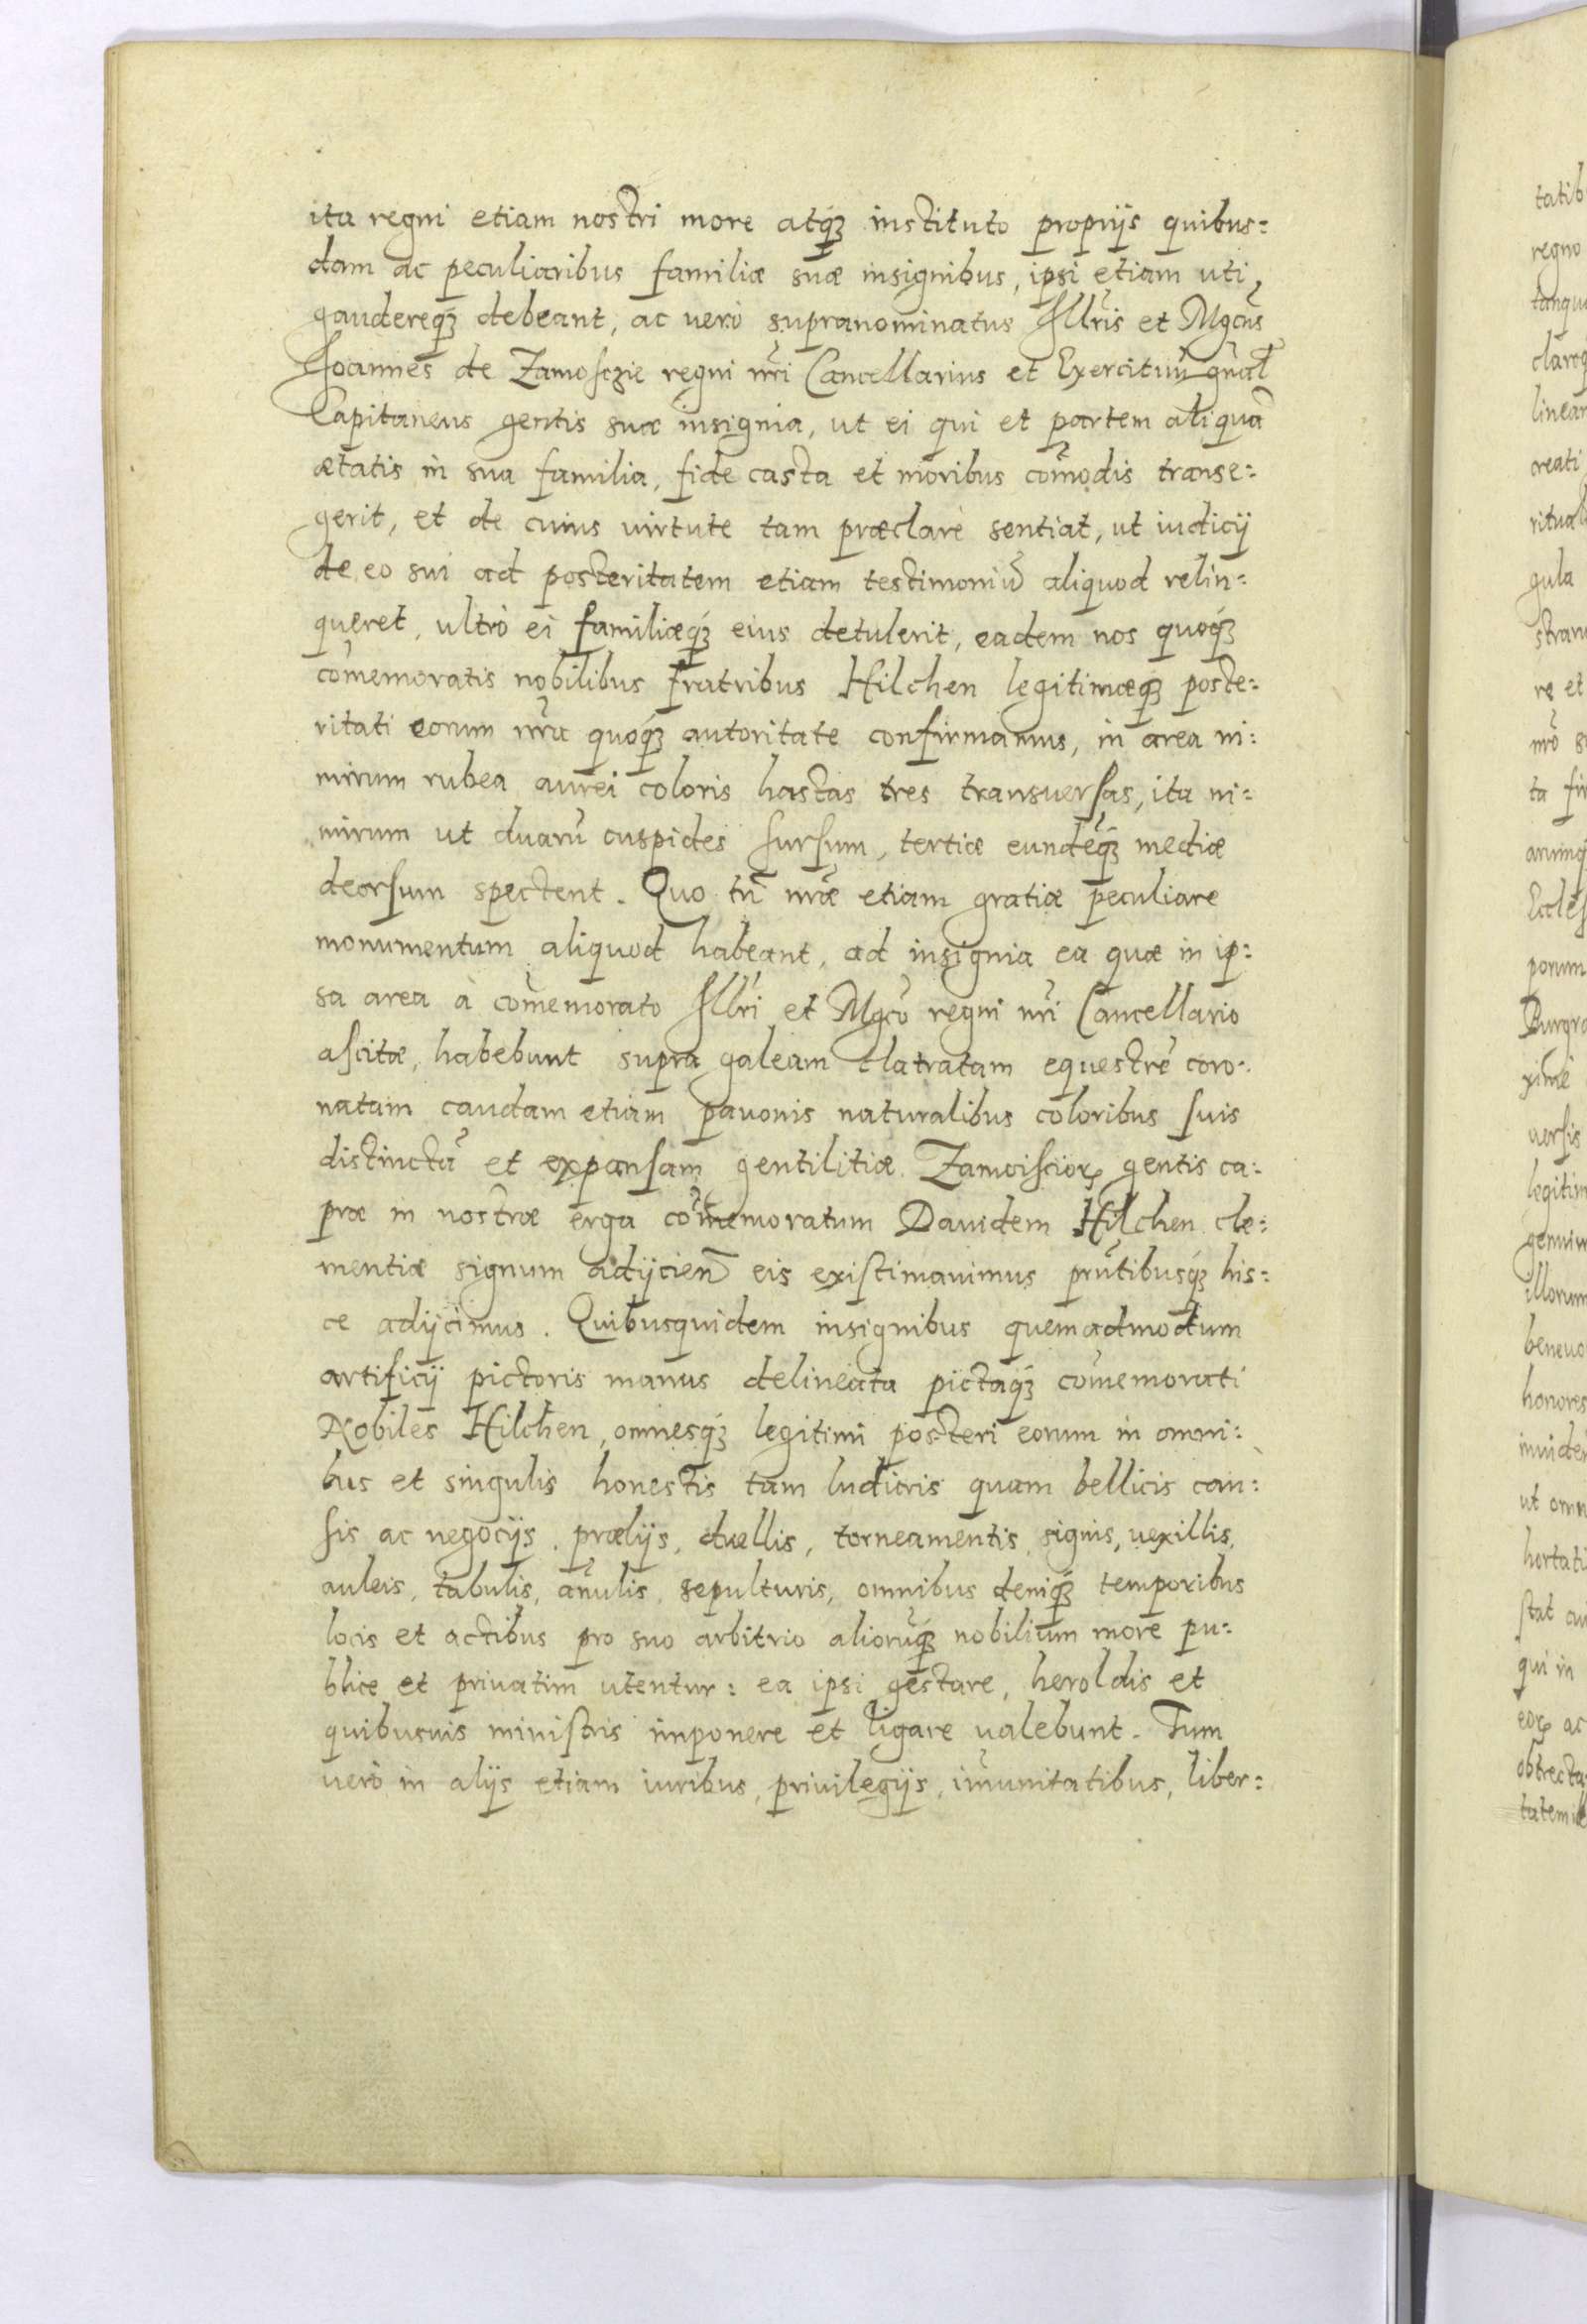 ita regni etiam nostri more atq́ꝫ instituto proprijs quibus:
dam ac peculiaribus familiæ suæ insignibus, ipsi etiam uti,
gaudereq́ꝫ debeant, ac uerò supranominatus Illr̃is et Mgc̃us
Joannes de Zamoſczie regni nr̃i Cancellarius et Exercituũ gñal
Capitaneus gentis suæ insignia, ut ei qui et partem aliquã
ætatis in sua familia, fide casta et moribus com̃odis transe:
gerit, et de cuius uirtute tam præclarè sentiat, ut iudicij
de eo sui ad posteritatem etiam testimoniũ aliquod relin:
queret, ultrò ei familiæq́ꝫ eius detulerit, eadem nos quoq́ꝫ
com̃emoratis nobilibus fratribus Hilchen legitimæq́ꝫ poste:
ritati eorum nr̃a quoq́ꝫ autoritate confirmamus, in area ni:
mirum rubea aurei coloris hastas tres transuerſas, ita ni:
mirum ut duarũ cuspides ſurſum, tertiæ eundẽq́ꝫ mediæ
deorſum spectent. Quo tñ nr̃æ etiam gratiæ peculiare
monumentum aliquod habeant, ad insignia ea quæ in ip:
sa area à com̃emorato Illr̃i et Mgcõ regni nr̃i Cancellario
aſcitæ, habebunt supra galeam clatratam equestrẽ coro:
natam caudam etiam pauonis naturalibus coloribus ſuis
distinctã et expanſam gentilitiæ Zamoiſcioꝝ gentis ca:
præ in nostræ erga com̃emoratum Dauidem Hilchen cle:
mentiæ signum adijcien̄ eis exiſtimauimus prñtibusq́ꝫ his:
ce adijcimus. Quibusquidem insignibus quemadmodum
artificij pictoris manus delineata pictaq́ꝫ com̃emorati
Nobiles Hilchen, omnesq́ꝫ legitimi posteri eorum in omni:
bus et singulis honestis tam ludicris quam bellicis cau:
ſis ac negocijs, prælijs, duellis, torneamentis, signis, uexillis,
auleis, tabulis, añulis, sepulturis, omnibus deniq́ꝫ temporibus
locis et actibus pro suo arbitrio aliorũq́ꝫ nobilium more pu:
blice et priuatim utentur: ea ipsi gestare, heroldis et
quibusuis miniſtris imponere et ligare ualebunt. Tum
uerò in alijs etiam iuribus, priuilegijs, im̃unitatibus, liber: